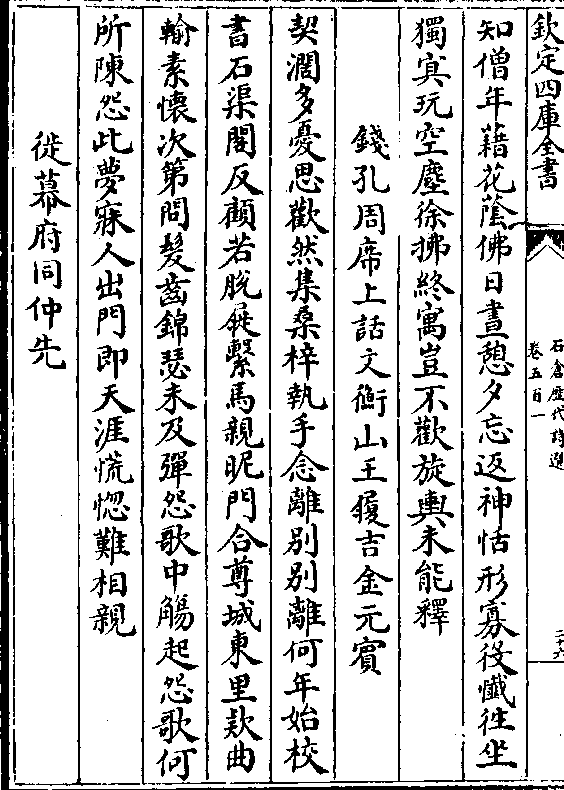 欽定四庫全書
石倉歷代詩選
卷五百一
二十六
知僧年藉花蔭佛日晝憩夕忘返神怡形寡役懺往坐
獨寘玩空塵徐拂終寓豈不歡旋輿未能釋
錢孔周席上話文衡山王履吉金元賓
契濶多憂思歡然集桑梓執手念離别别離何年始校
書石渠閣反顧若脱屣繫馬親昵門合尊城東里款曲
輸素懷次第問髮齒錦瑟未及彈怨歌中觴起怨歌何
所陳怨此夢寐人出門即天涯慌惚難相親
徙幕府同仲先